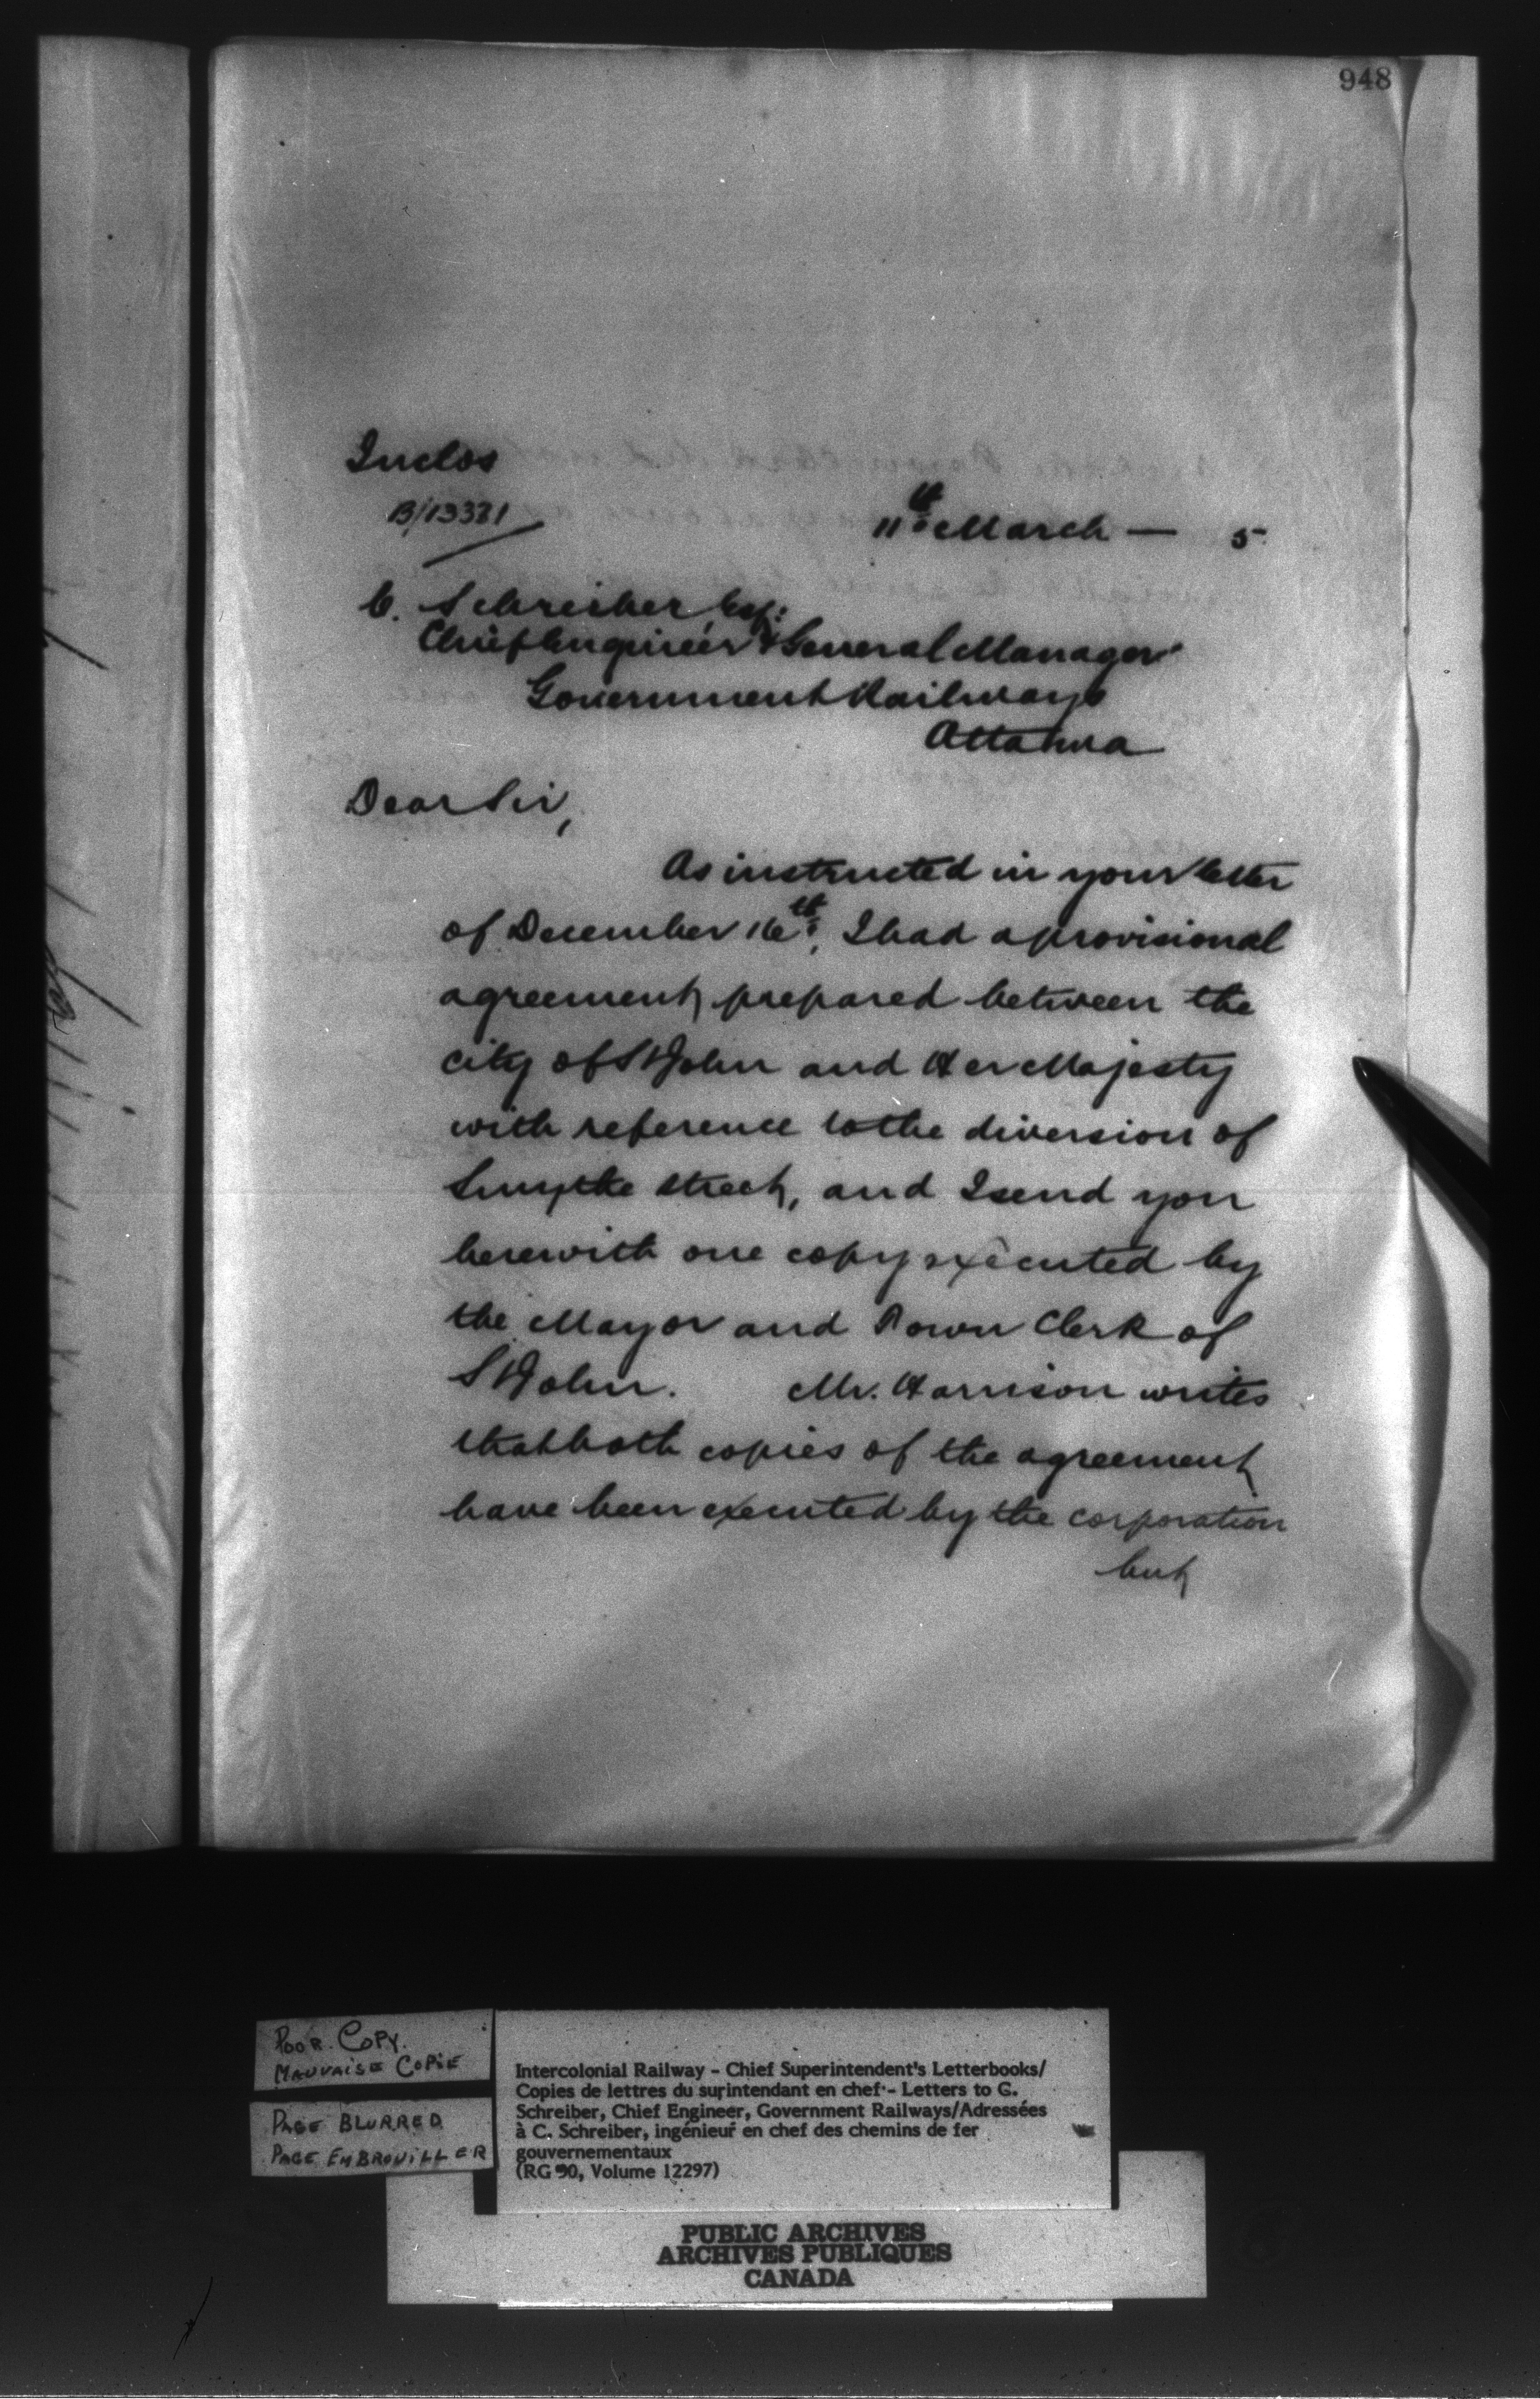 948
Inclos
B/13321
11th March — 5
C. Schreiber, Esq:
Chief Engineer & General Manager
Government Railways
Ottawa
Dear Sir,
As instructed in your letter
of December 16th, I had a provisional
agreement prepared between the
city of St John and Her Majesty
with reference to the diversion of
Smythe street, and I send you
herewith one copy executed by
the Mayor and Town Clerk of
St John. Mr. Harrison writes
that both copies of the agreement
have been executed by the corporation
but
POOR COPY.
MAUVAISE COPIE
PAGE BLURRED
PAGE EMBROUILLER
Intercolonial Railway - Chief Superintendent's Letterbooks/
Copies de lettres du surintendant en chef - Letters to C.
Schreiber, Chief Engineer, Government Railways/Adressées
à C. Schreiber, ingénieur en chef des chemins de fer
gouvernementaux
(RG 30, Volume 12297)
PUBLIC ARCHIVES
ARCHIVES PUBLIQUES
CANADA